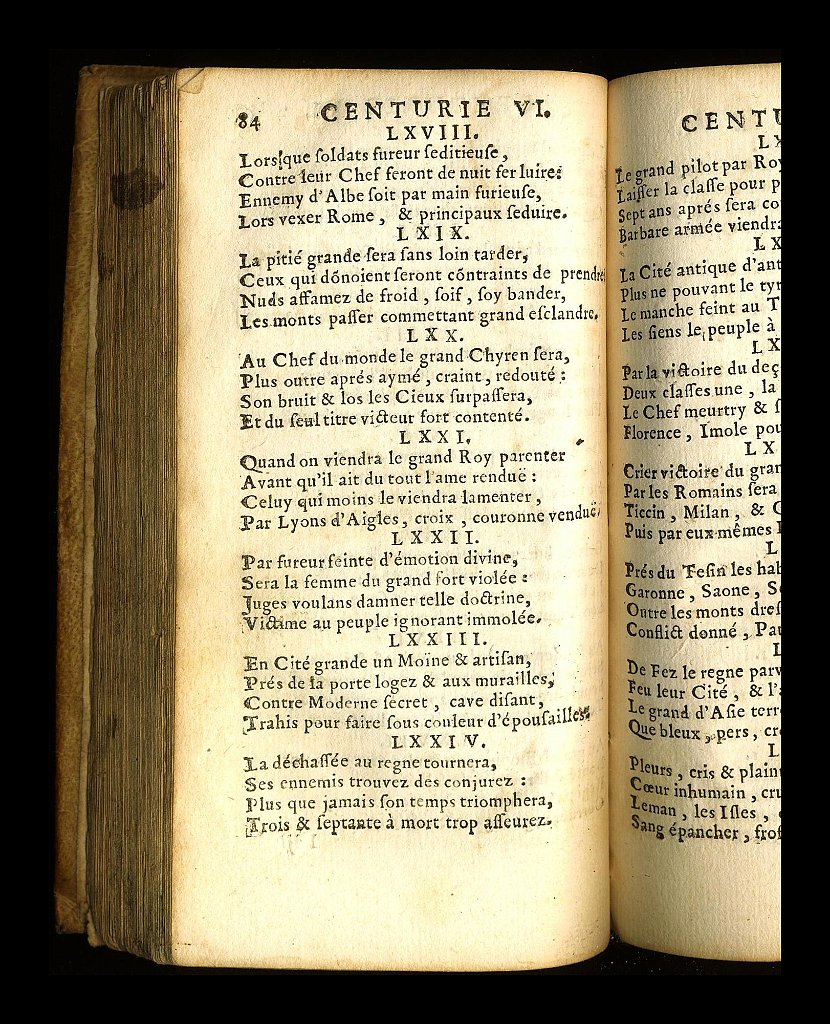 84 CENTURIE VI.
LXVIII.
Lorsque ſoldats fureur ſeditieuſe,
Contre leur Chef feront de nuit fer luire:
Ennemy d'Albe ſoit par main furieuſe,
Lors vexer Rome, & principaux ſeduire.
LXIX.
La pitié grande ſera ſans loin tarder,
Ceux qui dõnoient ſeront cõntraints de prendre
Nuds affamez de froid, ſoif, ſoy bander,
Les monts paſſer commettant grand eſclandre.
LXX.
Au Chef du monde le grand Chyren ſera,
Plus outre aprés aymé, craint, redouté:
Son bruit & los les Cieux ſurpaſſera,
Et du ſeul titre victeur fort contenté.
LXXI.
Quand on viendra le grand Roy parenter
Avant qu'il ait du tout l'ame renduë:
Celuy qui moins le viendra lamenter,
Par Lyons d'Aigles, croix, couronne venduë.
LXXII.
Par fureur feinte d'émotion divine,
Sera la femme du grand fort violée:
Juges voulans damner telle doctrine,
Victime au peuple ignorant immolée.
LXXIII.
En Cité grande un Moine & artiſan,
Prés de la porte logez & aux murailles,
Contre Moderne ſecret, cave diſant,
Trahis pour faire ſous couleur d'épouſailles.
LXXIV.
La déchaſſée au regne tournera,
Ses ennemis trouvez des conjurez:
Plus que jamais ſon temps triomphera,
Trois & ſeptante à mort trop aſſeurez.
CENTU
LX
Le grand pilot par Roy
Laiſſer la claſſe pour p
Sept ans aprés ſera co
Barbare armée viendra
LX
La Cité antique d'ant
Plus ne pouvant le tyr
Le manche feint au T
Les ſiens le peuple à
LX
Par la victoire du deç
Deux claſſes une, la
Le Chef meurtry & ſ
Florence, Imole pou
LX
Crier victoire du gran
Par les Romains ſera
Ticcin, Milan, & G
Puis par eux-mêmes
L
Prés du Teſin les hab
Garonne, Saone, Se
Outre les monts dreſ
Conflict donné, Pau
L
De Fez le regne parv
Feu leur Cité, & l'a
Le grand d'Aſie terr
Que bleux, pers, cr
L
Pleurs, cris & plain
Cœur inhumain, cru
Leman, les Iſles,
Sang épancher, froi